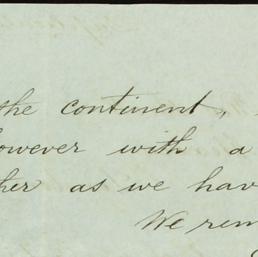 the continent,
however with a
as we have
We rem